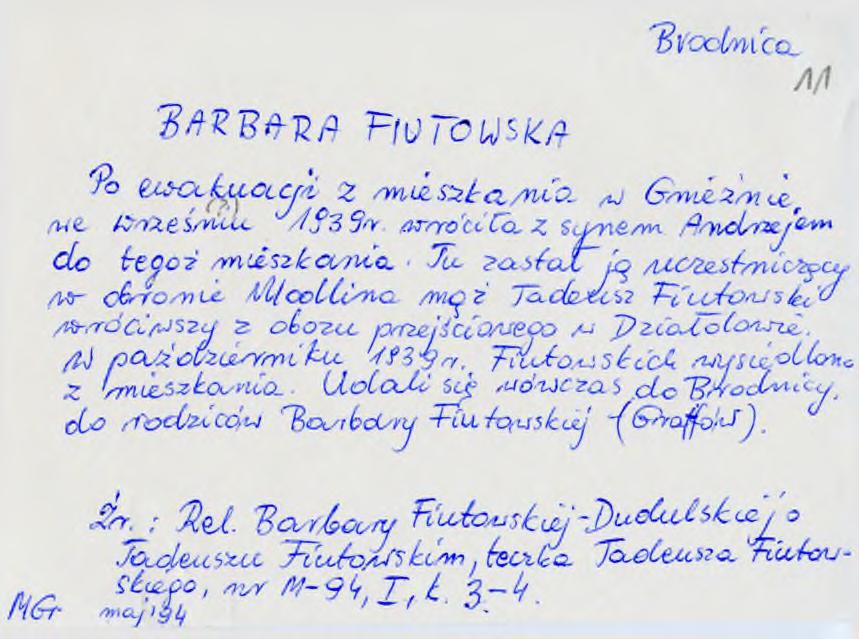 Brodnica
11
BARBARA FIUTOWSKA
Po ewakuacji z mieszkania w Gnieźnie,
we wrześniu (?) 1939r. wróciła z synem Andrzejem
do tegoż mieszkania. Tu zastał ją uczestniczący
w obronie Modlina mąż Tadeusz Fiutowski
wróciwszy z obozu przejściowego w Działdowie.
W październiku 1939r. Fiutowskich wysiedlono
z mieszkania. Udali się wówczas do Brodnicy,
do rodziców Barbary Fiutowskiej (Graffów).
Źr.: Rel. Barbary Fiutowskiej-Dudulskiej o
Tadeuszu Fiutowskim, teczka Tadeusza Fiutow-
skiego, nr M-94, I, k. 3-4.
MGr maj '94